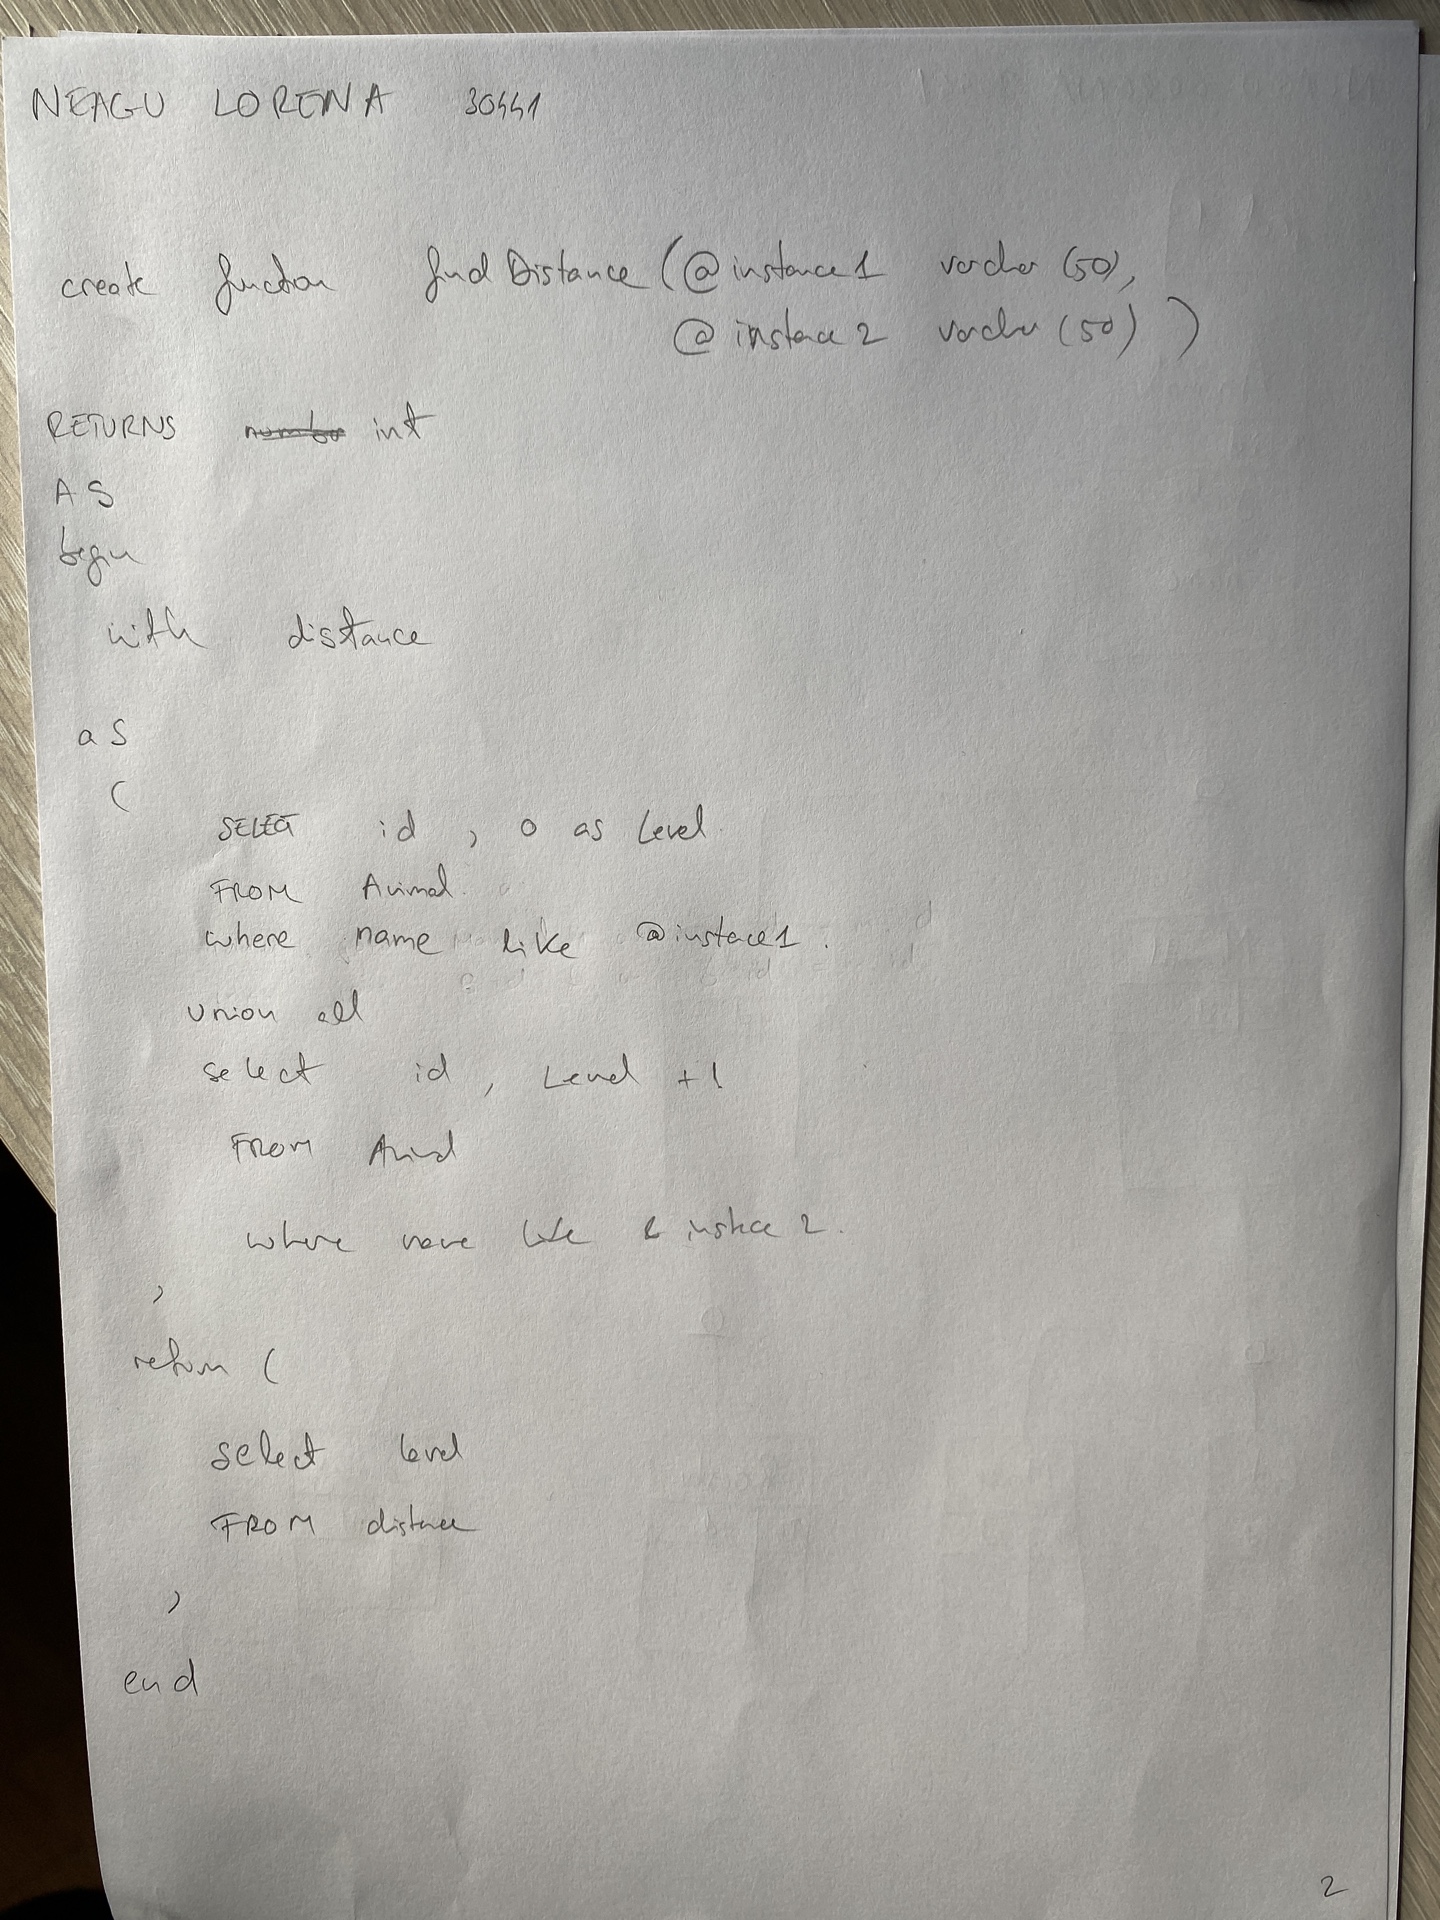 NEAGU LORENA 30441
create function findDistance (@instance1 varchar (50),
@instance2 varchar (50) )
RETURNS int
AS
begin
with distance
as
(
SELECT id , 0 as Level
FROM Animal
where name like @instance1
union all
select id , Level +1
FROM Animal
where name like @instance2
)
return (
select level
FROM distance
)
end
2